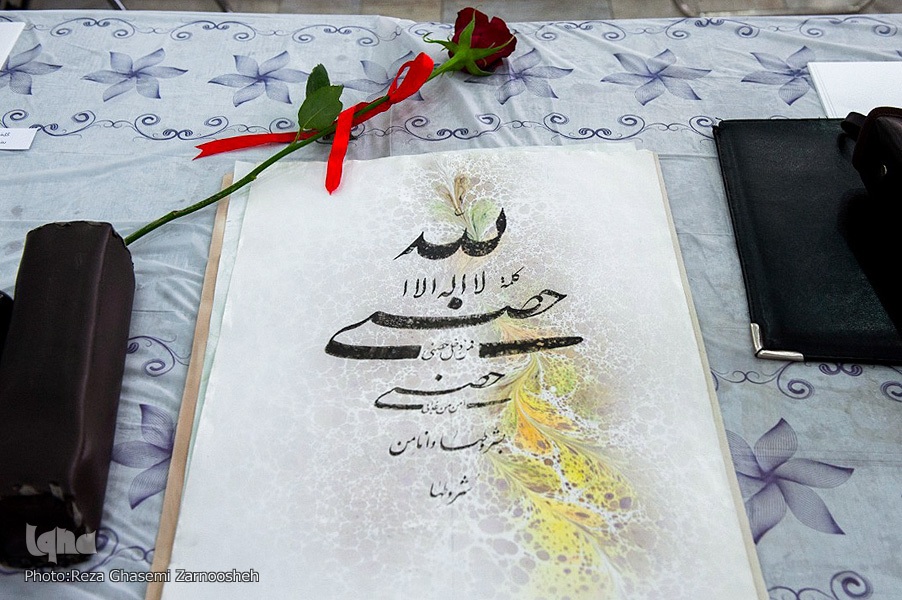 الله
كلمة لا اله الا
حصنی
فمن دخل حصنی
حصنی
امن من عذابی
بشروطها وانا من
شروطها
iqna
Photo:Reza Ghasemi Zarnoosheh